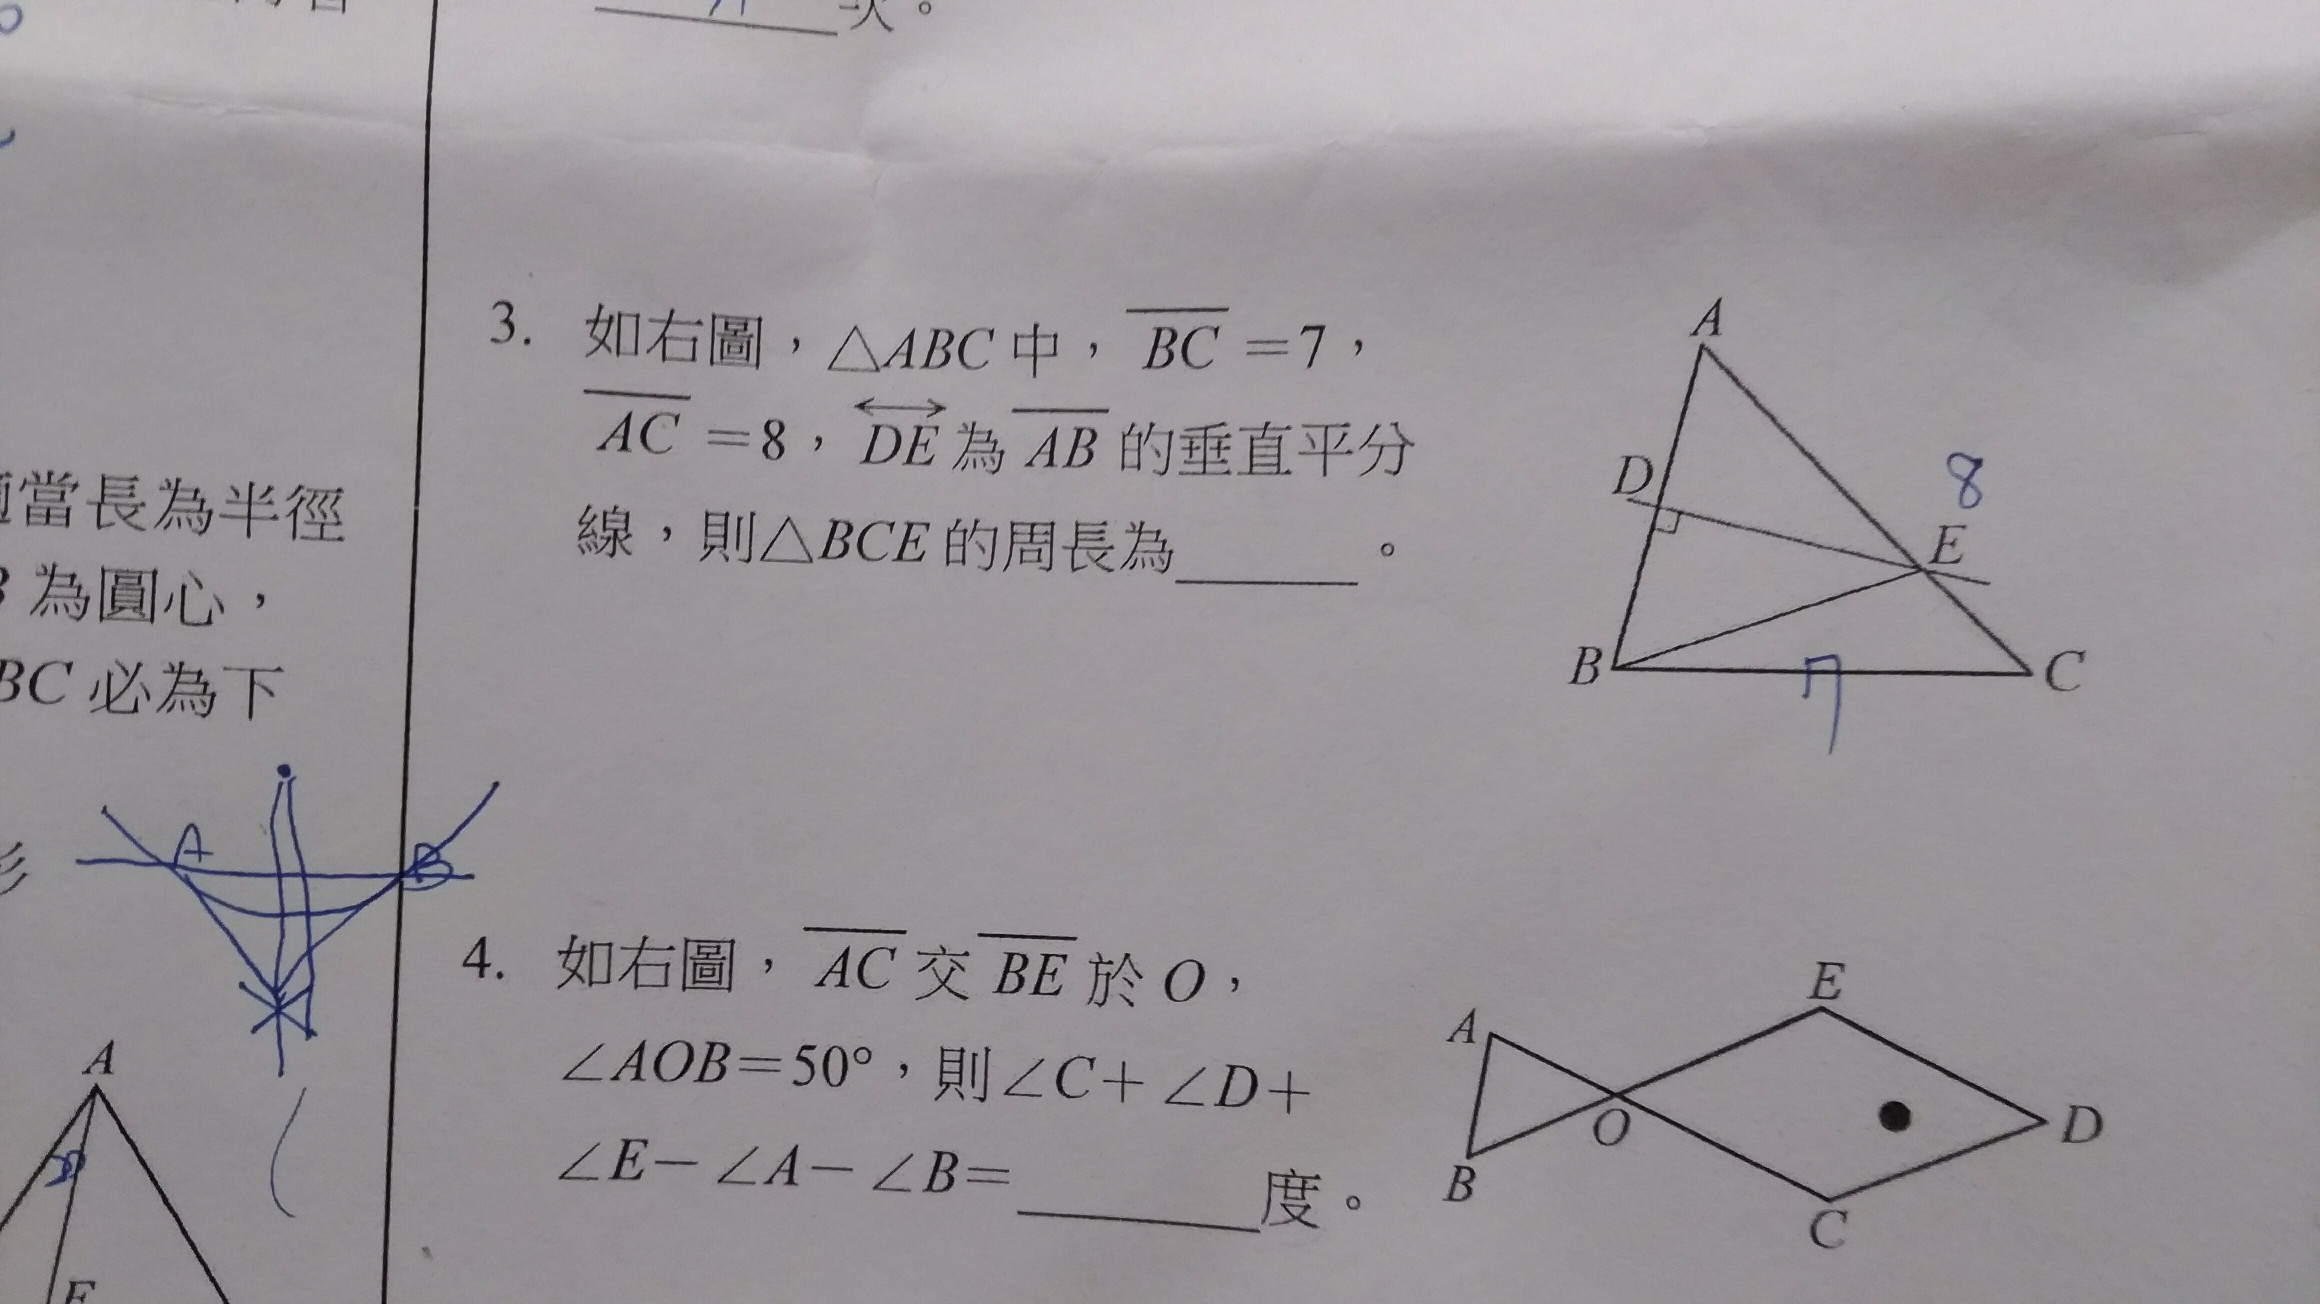 次。
當長為半徑
B 為圓心，
BC 必為下
A
B
A
E
3. 如右圖，△ABC 中，BC＝7，
AC＝8，DE 為 AB 的垂直平分
線，則△BCE 的周長為______。
A
D
8
E
B
7
C
4. 如右圖，AC 交 BE 於 O，
∠AOB＝50°，則∠C＋∠D＋
∠E－∠A－∠B＝______度。
E
A
O
D
B
C